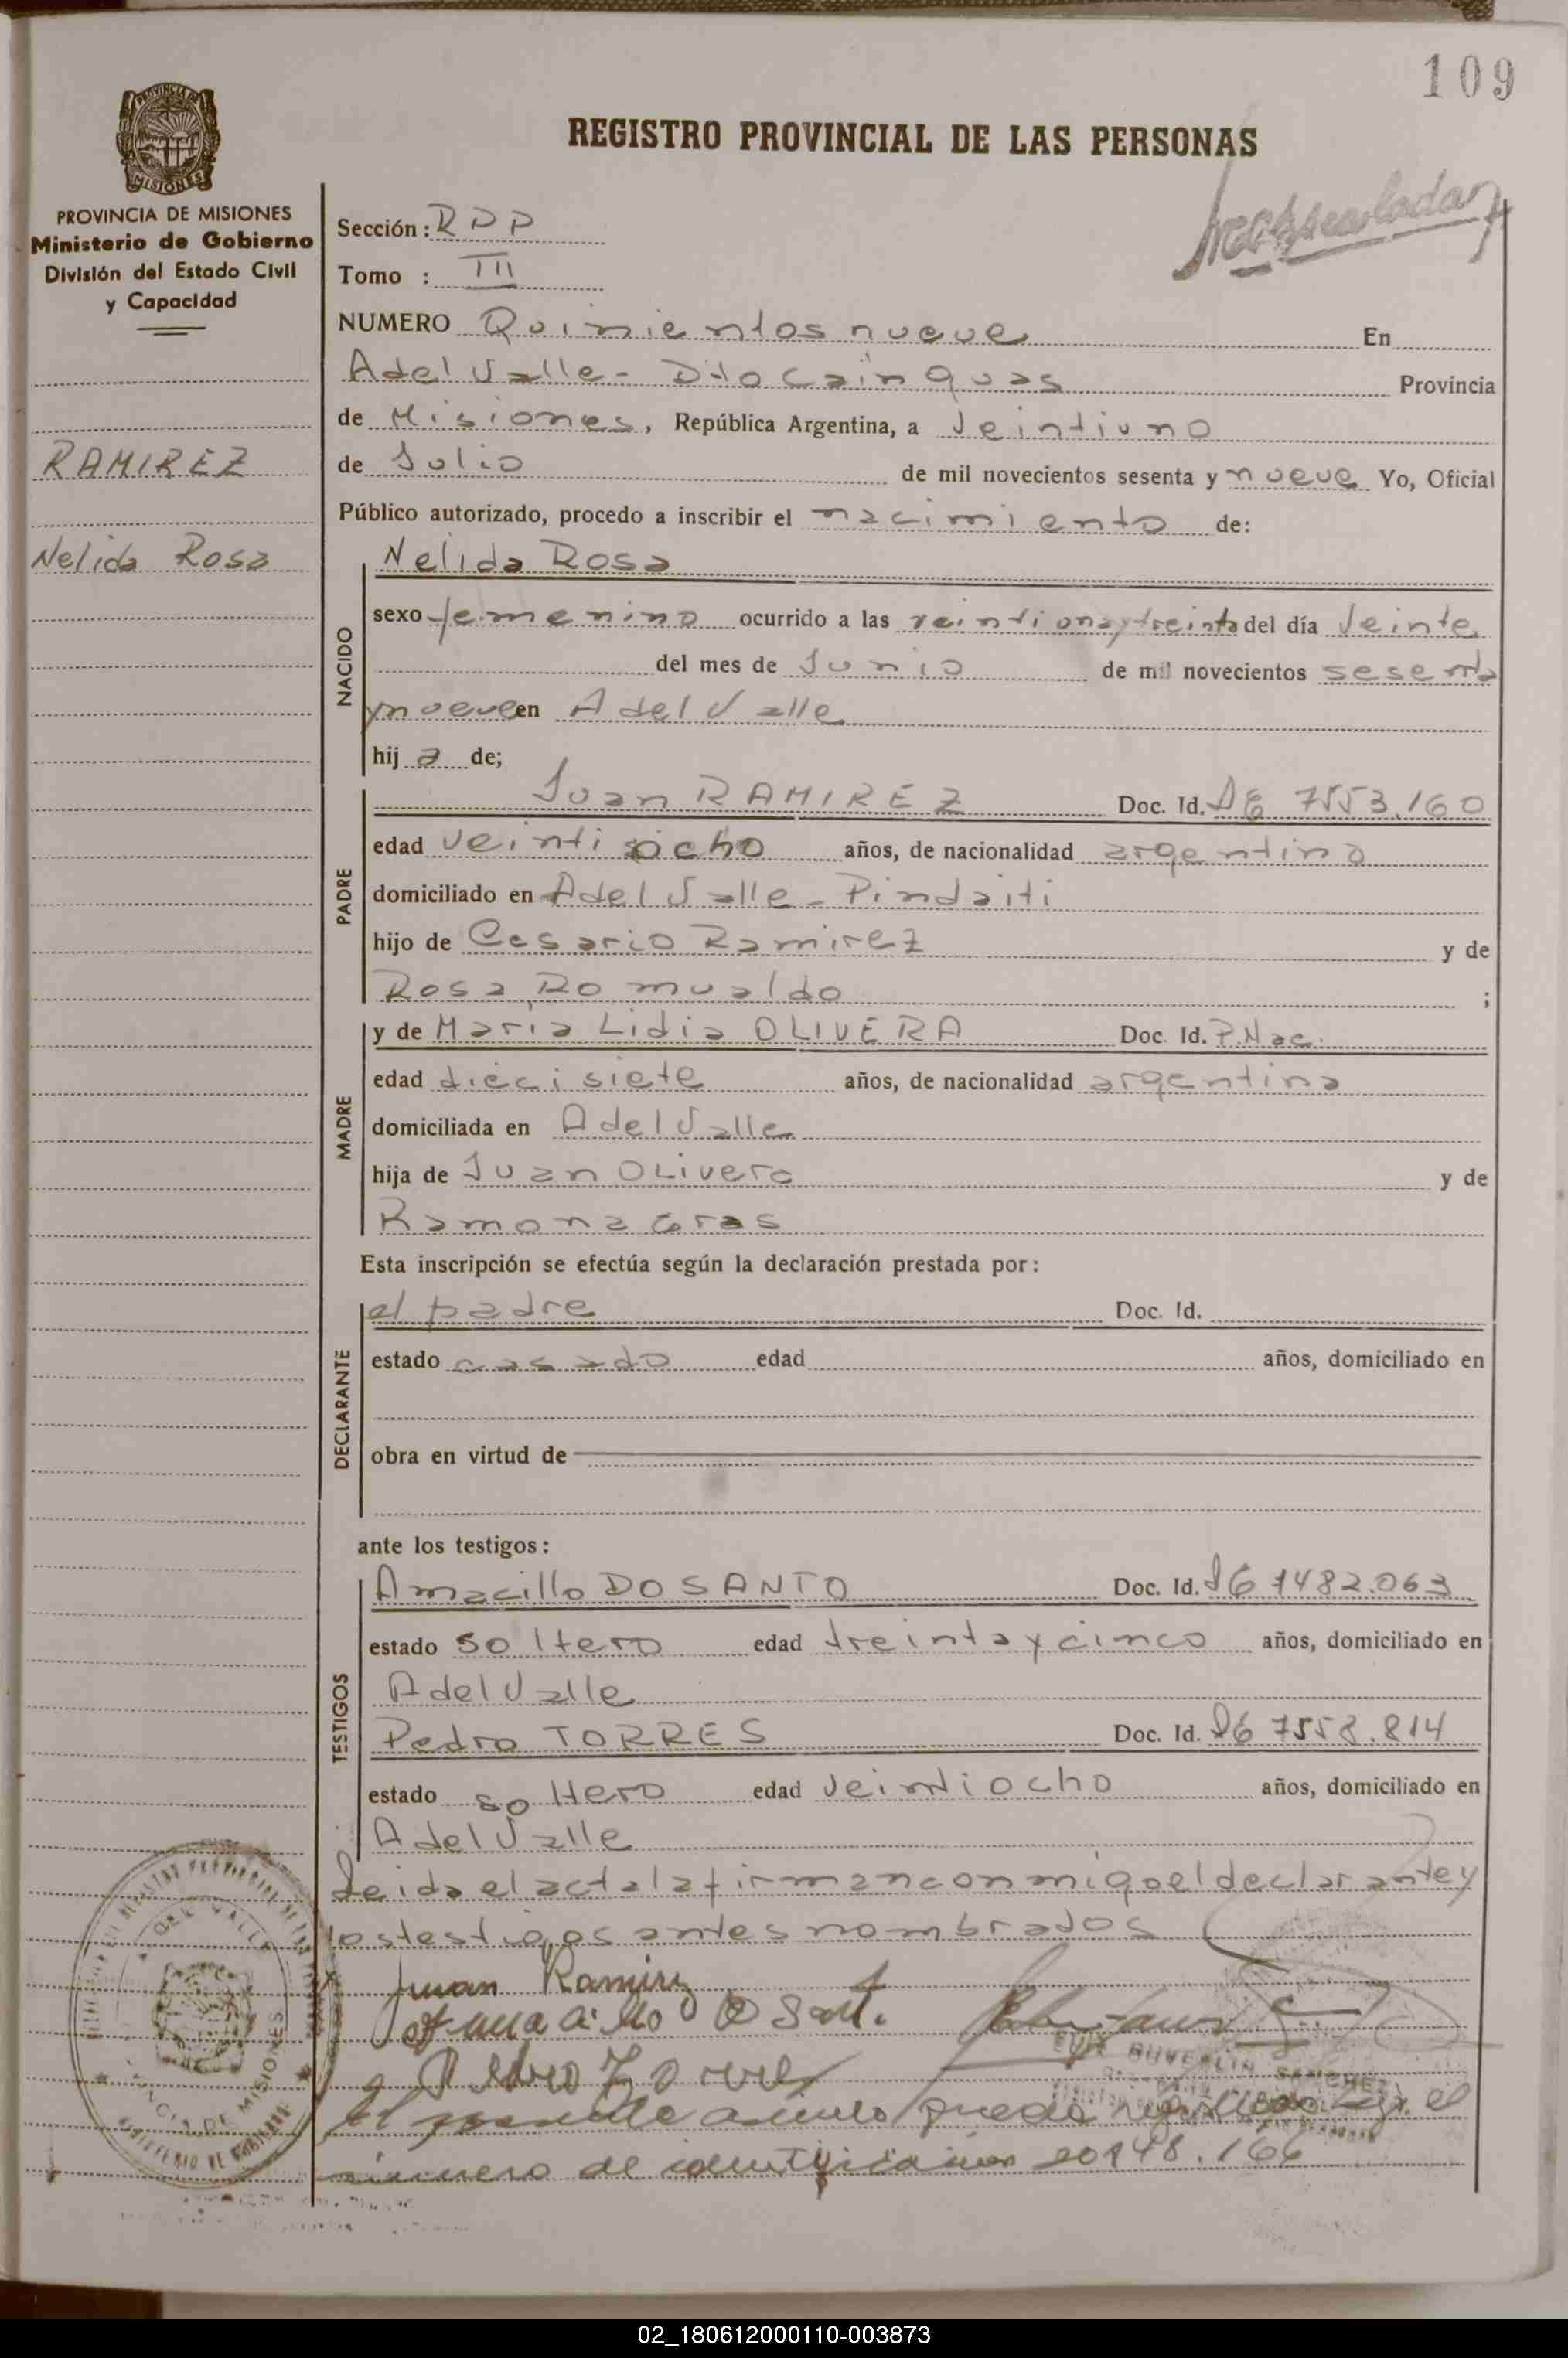 109
REGISTRO PROVINCIAL DE LAS PERSONAS
MISIONES
PROVINCIA DE MISIONES
Ministerio de Gobierno
División del Estado Civil
y Capacidad
RAMIREZ
Nelida Rosa
Sección: RDP
Tomo : III
NUMERO Quinientos nueve En
A del Valle - Dto Cainguas Provincia
de Misiones, República Argentina, a Veintiuno
de Julio de mil novecientos sesenta y nueve Yo, Oficial
Público autorizado, procedo a inscribir el nacimiento de:
NACIDO
Nelida Rosa
sexo femenino ocurrido a las veintiuna y treinta del día Veinte
del mes de Junio de mil novecientos sesenta
y nueve en A del Valle
hij a de;
PADRE
Juan RAMIREZ Doc. Id. 7553.160
edad veintiocho años, de nacionalidad argentino
domiciliado en A del Valle - Pindaiti
hijo de Cesario Ramirez y de
Rosa Romualdo ;
MADRE
y de Maria Lidia OLIVERA Doc. Id. P. Nac.
edad diecisiete años, de nacionalidad argentina
domiciliada en A del Valle
hija de Juan Olivera y de
Ramona
Esta inscripción se efectúa según la declaración prestada por:
DECLARANTE
el padre Doc. Id.
estado casado edad años, domiciliado en
obra en virtud de
ante los testigos:
TESTIGOS
Amacillo DO SANTO Doc. Id. 7482.063
estado soltero edad treinta y cinco años, domiciliado en
A del Valle
Pedro TORRES Doc. Id. 7558.814
estado soltero edad Veintiocho años, domiciliado en
A del Valle
Leida el acta la firman conmigo el declarante y
los testigos antes nombrados
Juan Ramirez
Pedro Torres
SANCHEZ
El presente queda el
numero de identificacion 20148.166
02_180612000110-003873